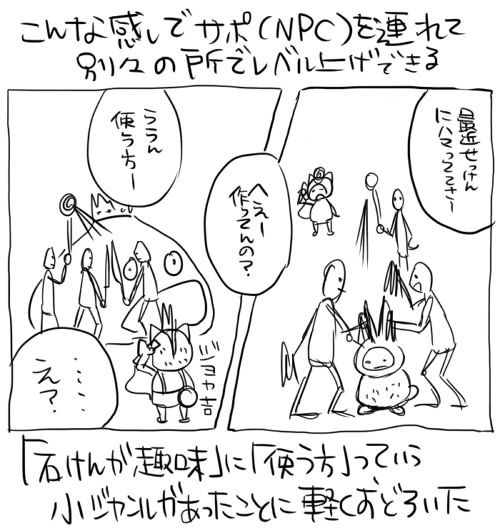 こんな感じでサポ(NPC)を連れて
別々の所でレベル上げできる
最近せっけん
にハマっててさー
へえー
作ってんの?
ううん
使う方ー
……
え?
ジョセ吉
「石けんが趣味」に「使う方」っていう
小ジャンルがあったことに軽くおどろいた